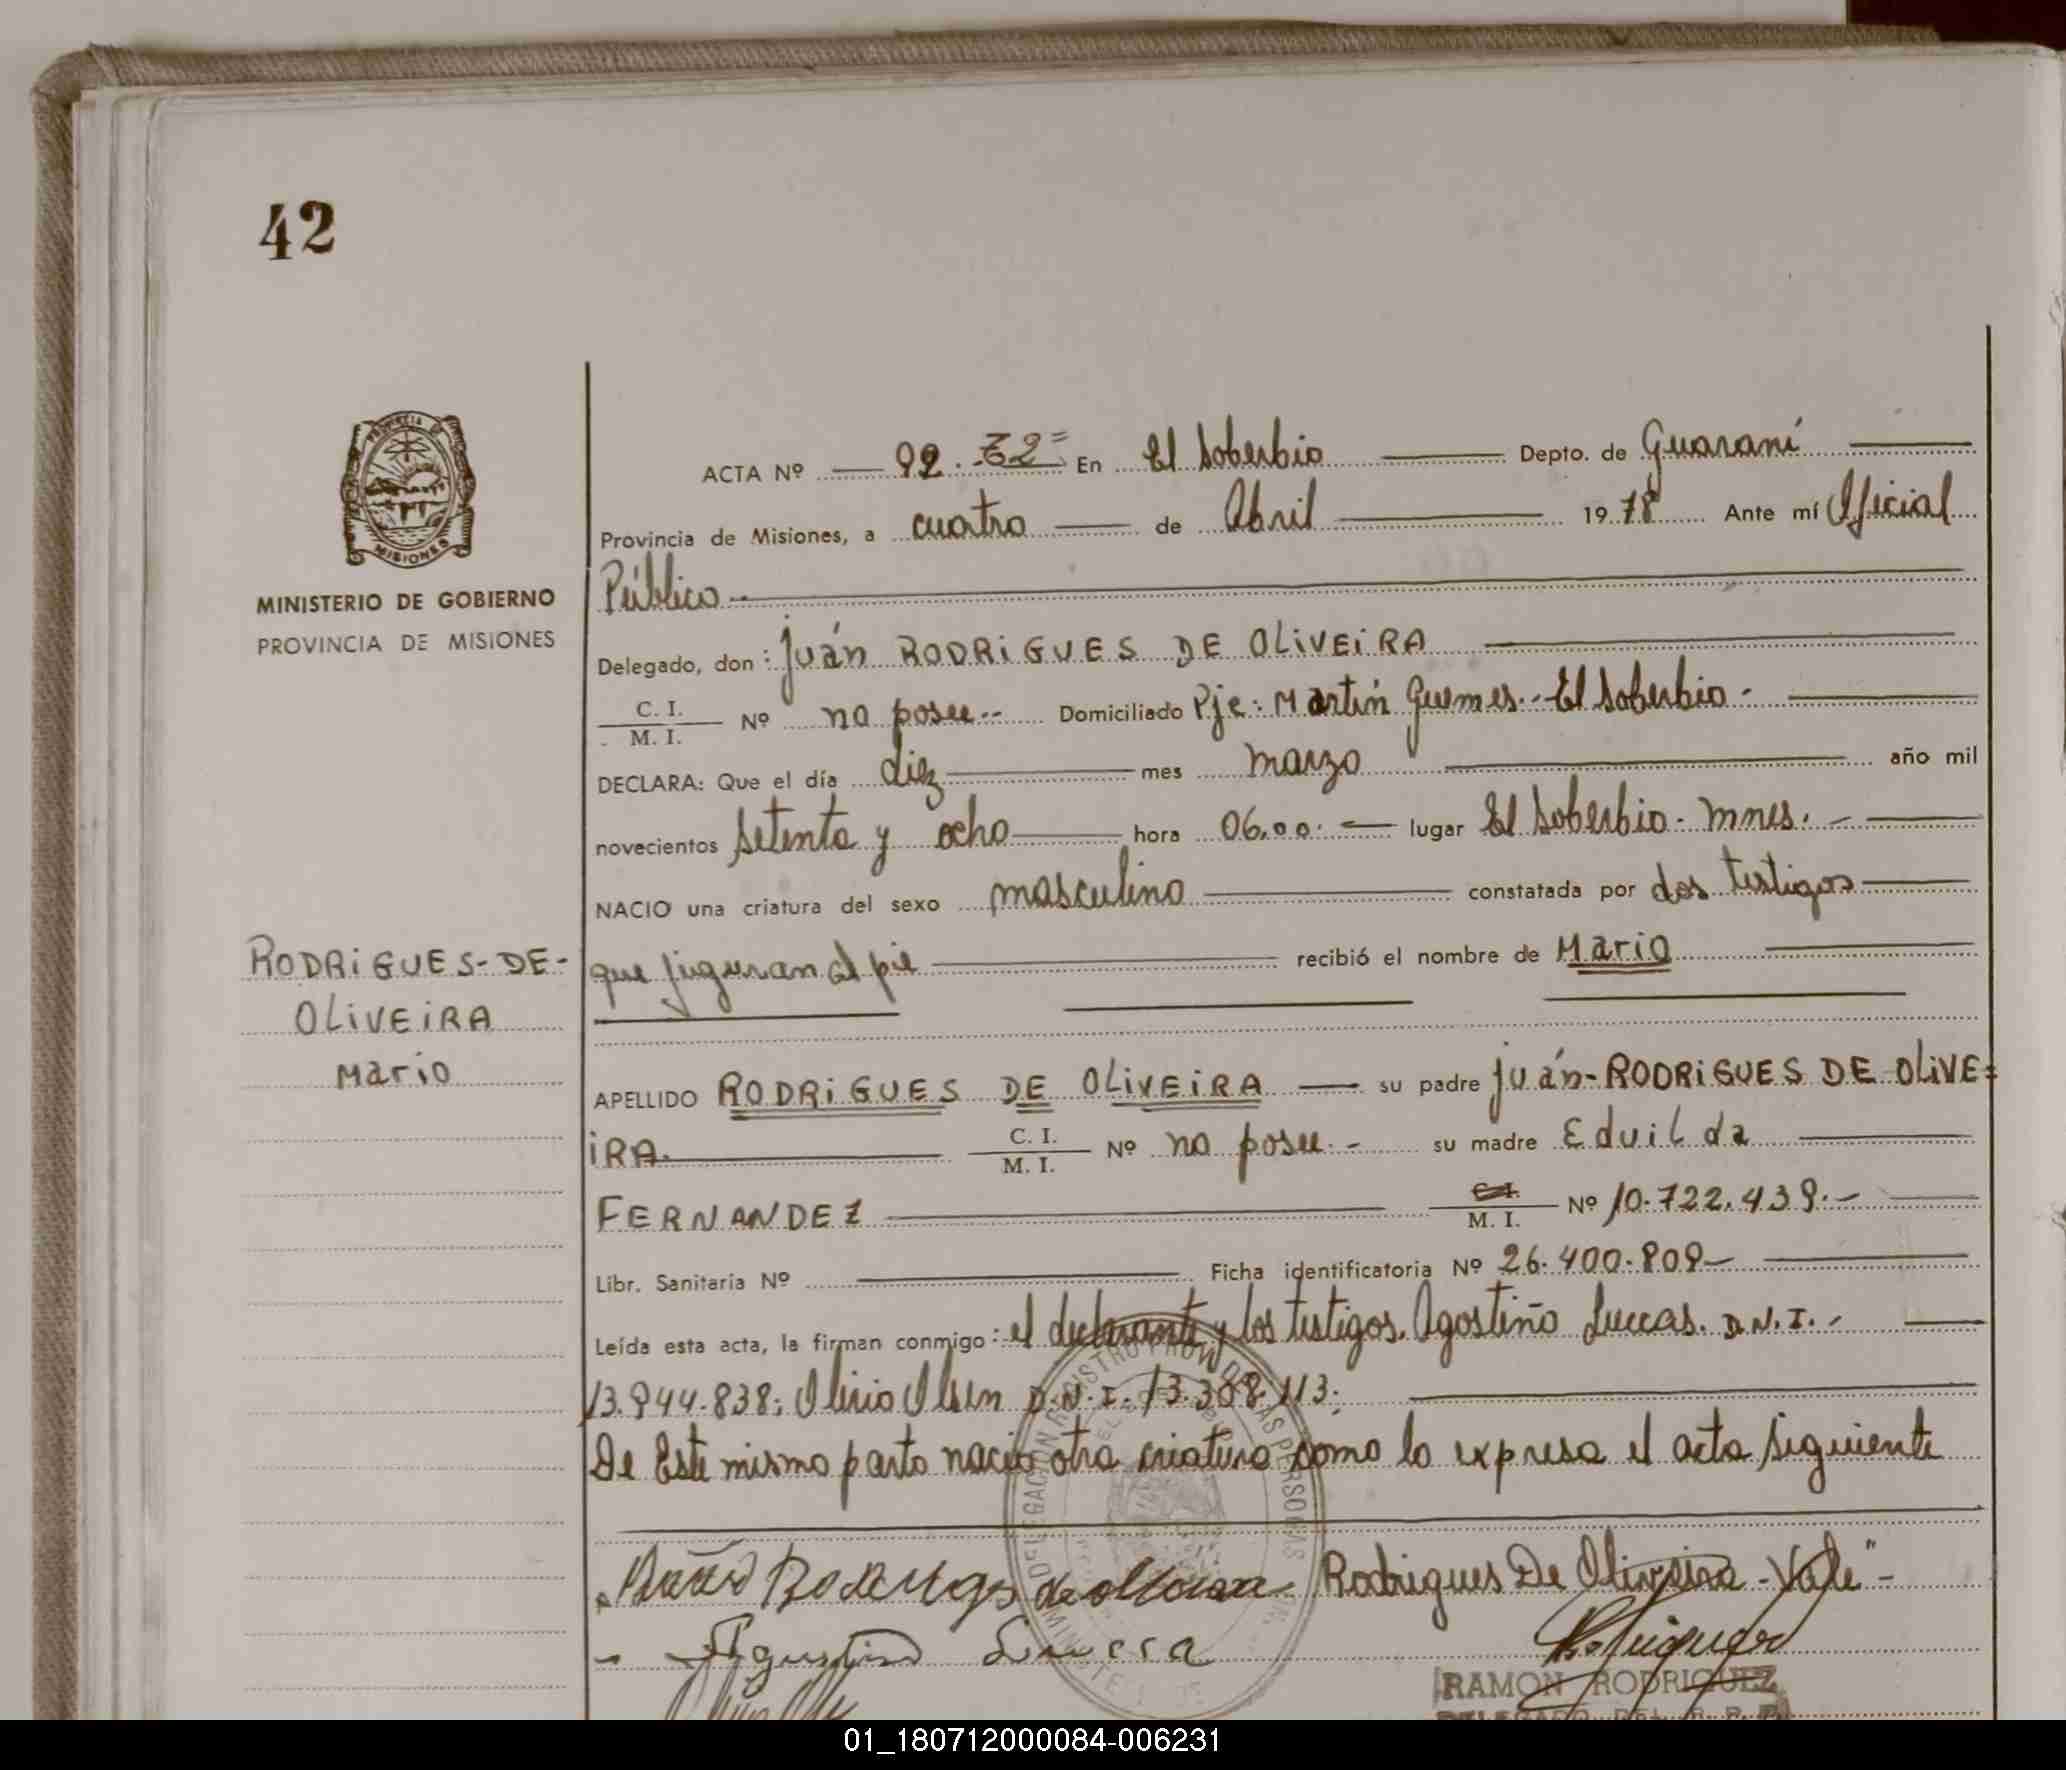 42
PROVINCIA
MISIONES
MINISTERIO DE GOBIERNO
PROVINCIA DE MISIONES
ACTA Nº 92. En El Soberbio Depto. de Guaraní
Provincia de Misiones, a cuatro de Abril 1978 Ante mí Oficial
Público
Delegado, don: Juán RODRiGUES DE OLiVEiRA
C. I.
M. I. Nº no posee.- Domiciliado Pje: Martín Guemes.- El Soberbio.-
DECLARA: Que el día diez mes marzo año mil
novecientos setenta y ocho hora 06,00. lugar El Soberbio. Mnes.-
NACIO una criatura del sexo masculino constatada por dos testigos
que figuran al pie recibió el nombre de Mario
RODRiGUES-DE-
OLiVEiRA
Mario
APELLIDO RODRiGUES DE OLiVEiRA su padre Juán-RODRiGUES DE OLiVE=
iRA. C. I.
M. I. Nº no posee.- su madre Eduilda
FERNANDEZ C. I.
M. I. Nº 10.722.439.-
Libr. Sanitaria Nº Ficha identificatoria Nº 26.400.809-
Leída esta acta, la firman conmigo: el declarante y los testigos. Agostiño Luccas. D.N.I.-
13.944.838; Olirio Olsen D.N.I. 13.388.113.
De Este mismo parto nació otra criatura como lo expresa el acta siguiente
Rodrigues De Oliveira - Vale"-
RAMON RODRIGUEZ
DELEGADO DEL R. P. P.
01_180712000084-006231